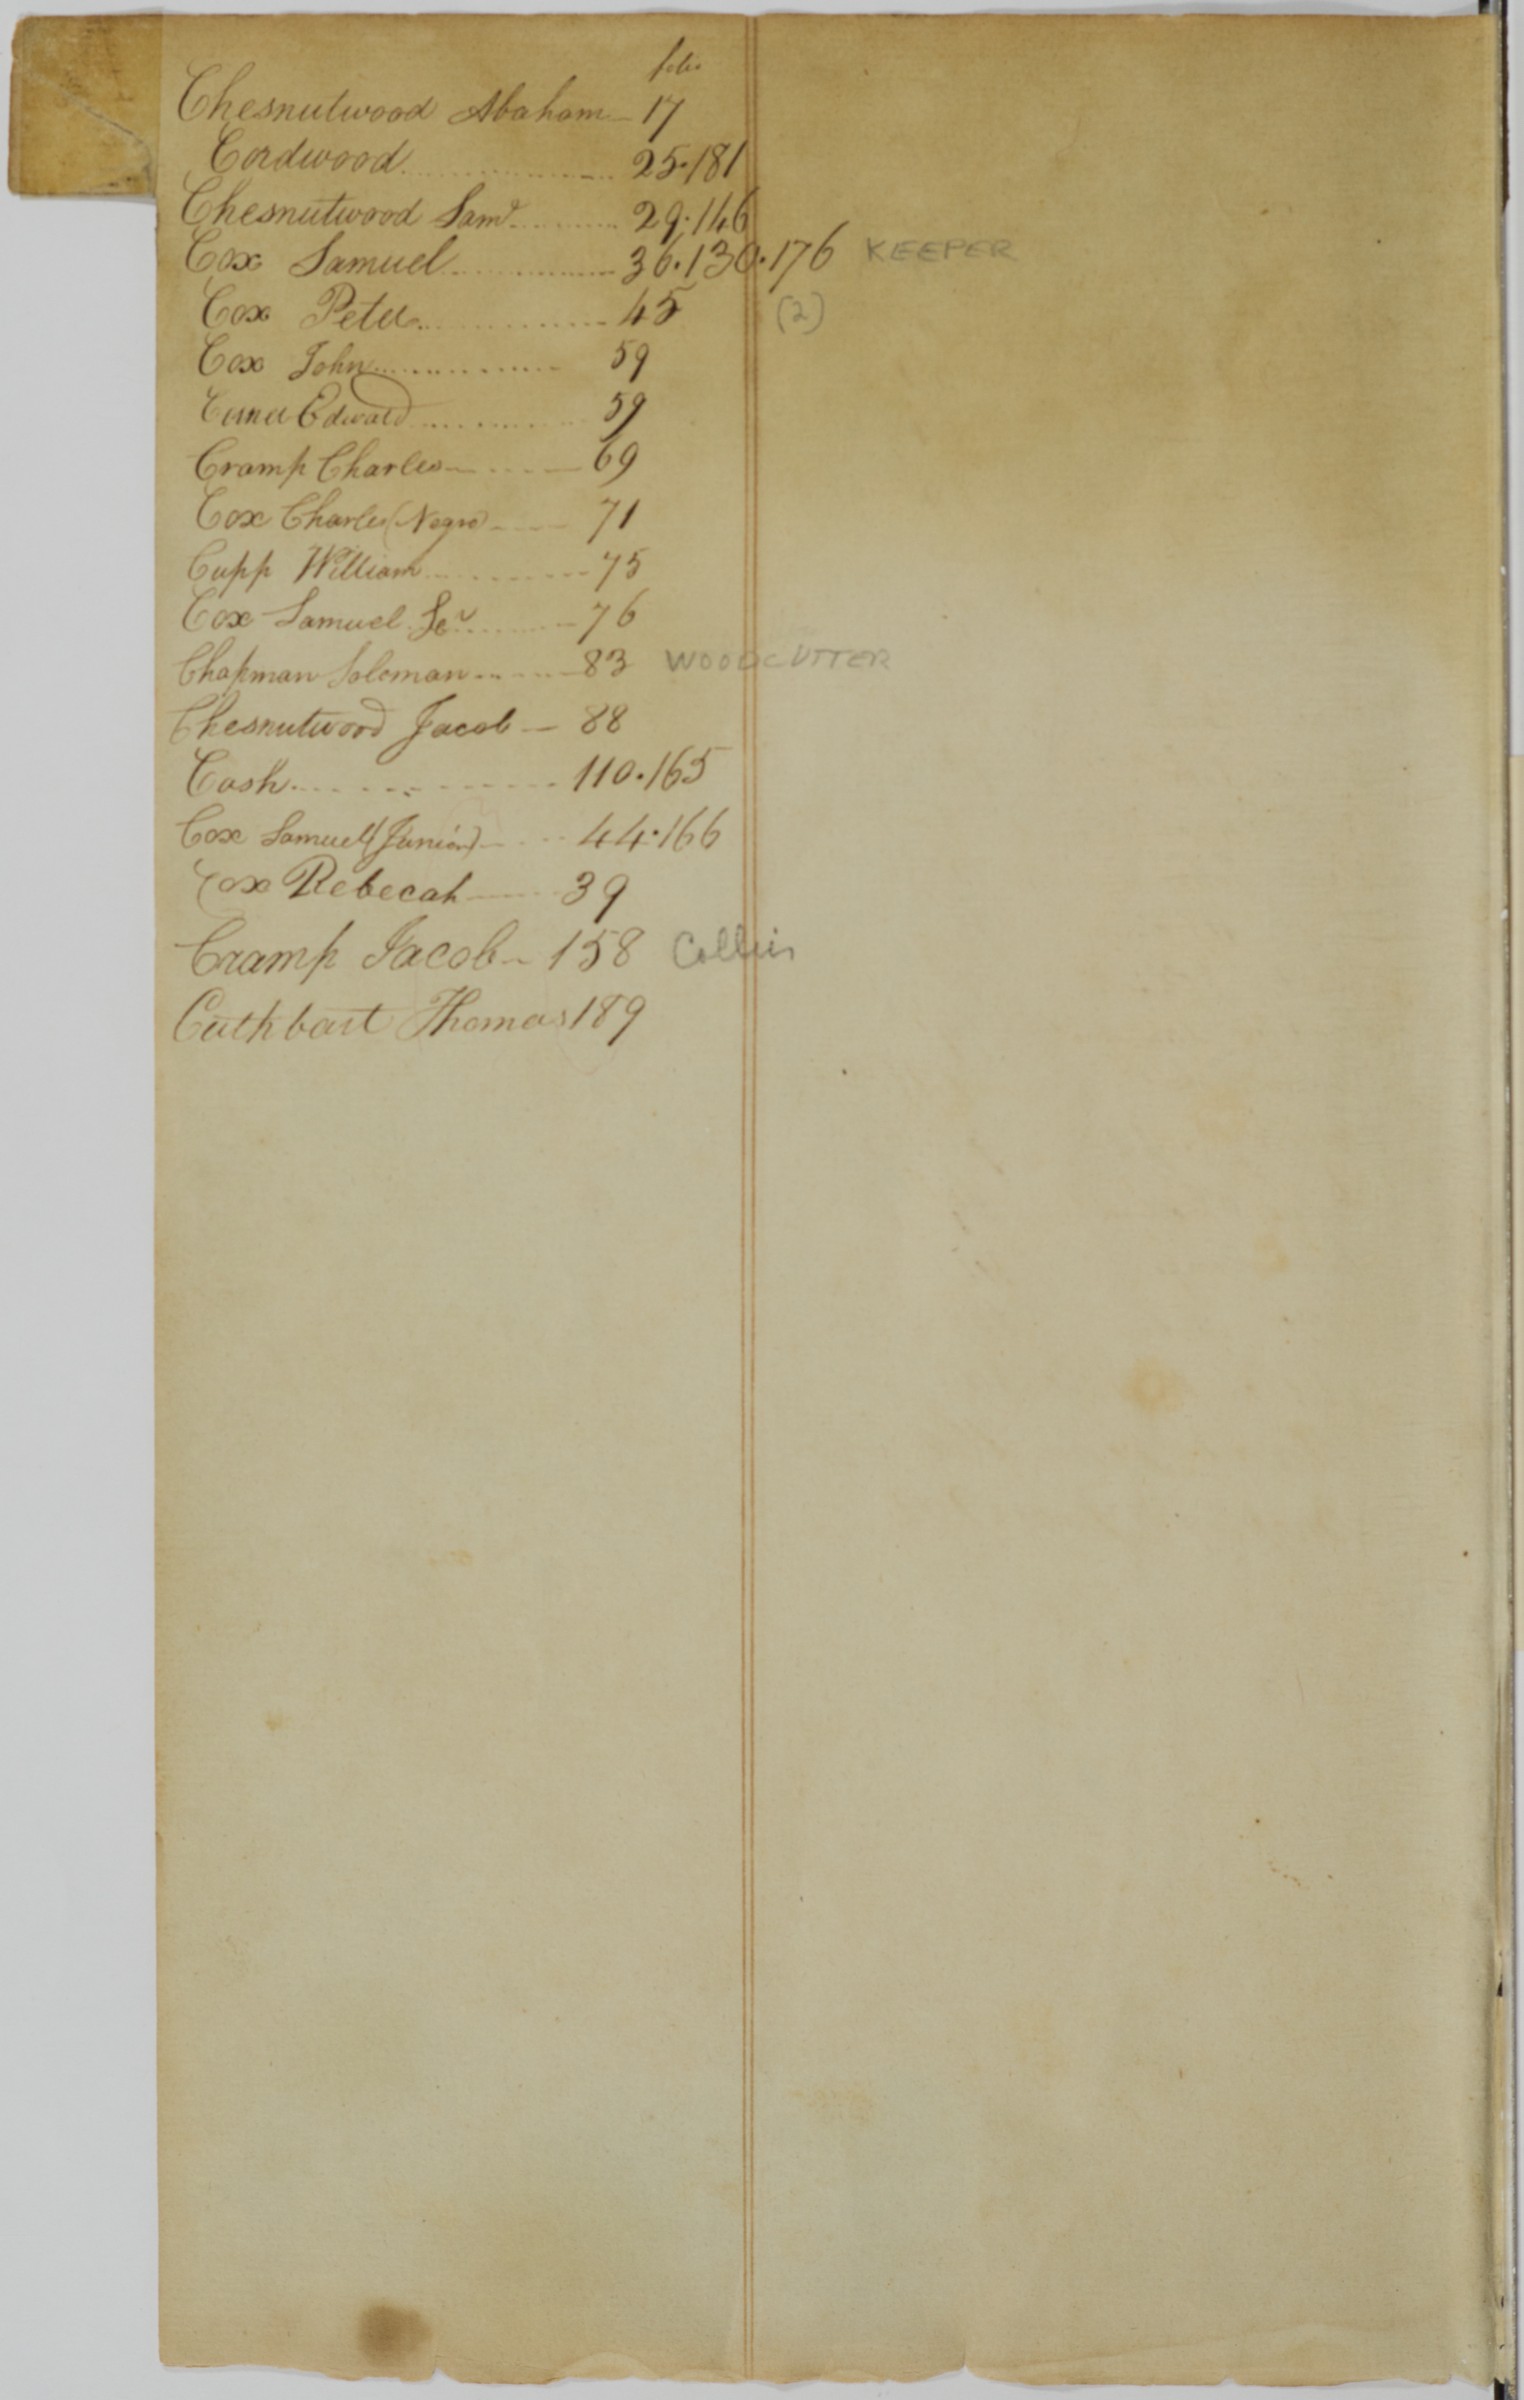 folio
Chesnutwood Abaham 17
Cordwood 25.181
Chesnutwood Saml 29.146
Cox Samuel 36.130.176 KEEPER
Cox Peter 45 (2)
Cox John 59
Edward 59
Cramp Charles 69
Cox Charles (Negro) 71
Cupp William 75
Cox Samuel Se[r] 76
Chapman Soloman 83 WOODCUTTER
Chesnutwood Jacob 88
Cash 110.165
Cox Samuel (Junior) 44.166
Cox Rebecah 39
Cramp Jacob 158 Collier
Cuthbart Thomas 189